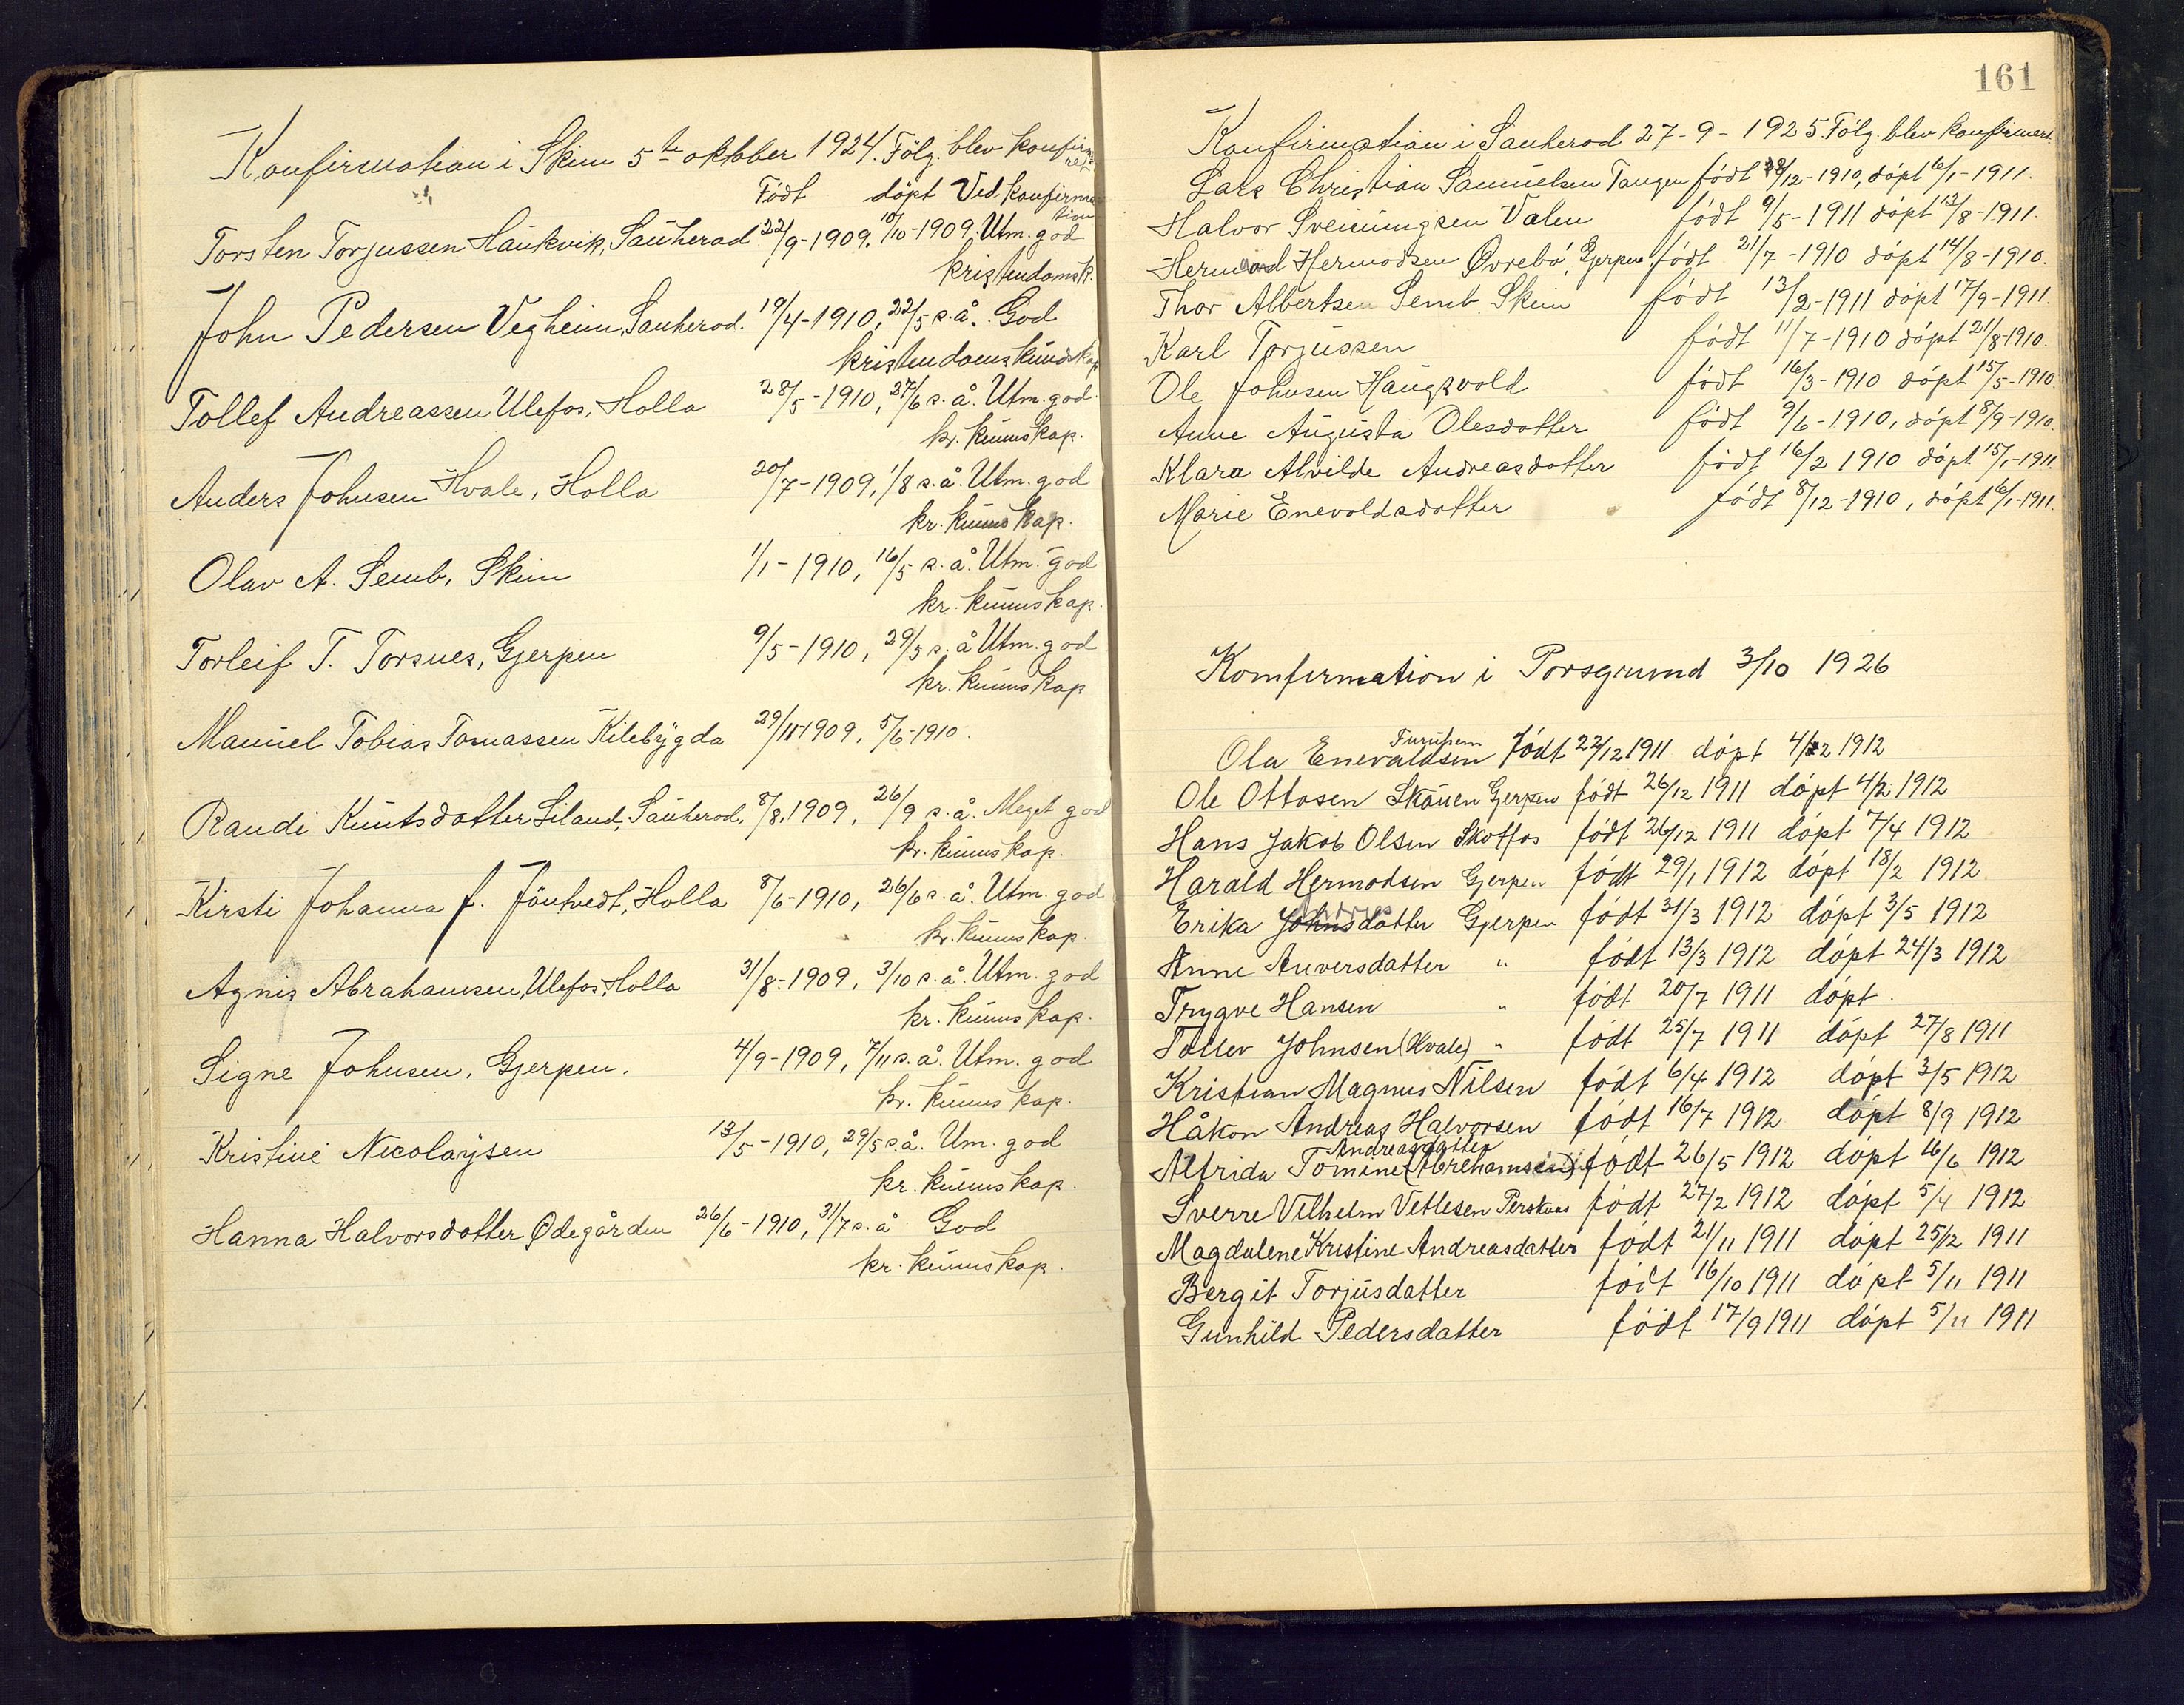 Konfirmation i Skien 5te oktober 1924. Følg. blev konfirmeret
Født døpt Ved konfirmationen
Torsten Torjussen Haukvik, Sauherad 22/9-1909. 10/10-1909. Utm. god
kristendomsk.
John Pedersen Vegheim, Sauherod. 19/4-1910, 22/5 s.å. God
kristendomskundskap
Tollef Andreassen Ulefos, Holla 28/5-1910, 27/6 s.å. Utm. god
kr. kunnskap.
Anders Johnsen Hvale, Holla 20/7-1909, 1/8 s.å. Utm. god
kr. kunnskap.
Olav A. Semb, Skien 1/1-1910, 16/5 s.å. Utm. god
kr. kunnskap.
Torleif T. Torsnes, Gjerpen 9/5-1910, 29/5 s.å Utm. god
kr. kunnskap
Manuel Tobias Tomassen Kilebygda 29/11-1909, 5/6-1910.
Randi Knutsdotter Liland, Sauherod, 8/8.1909, 26/9 s.å. Meget god
kr. kunnskap.
Kirsti Johanna J. Jøntvedt, Holla 8/6-1910, 26/6 s.å. Utm. god
kr. kunnskap.
Agnis Abrahamsen, Ulefos, Holla 31/8-1909, 3/10 s.å. Utm. god
kr. kunnskap.
Signe Johnsen, Gjerpen. 4/9-1909, 7/11 s.å. Utm. god
kr. kunnskap.
Kristine Nicolaysen 13/5-1910, 29/5 s.å. Um. god
kr. kunnskap.
Hanna Halvorsdotter Ødegården 26/6-1910, 31/7 s.å God
kr. kunnskap.
161
Konfirmation i Sauherod 27-9-1925. Følg. blev konfirmert.
Lars Christian Samuelsen Tangen født 8/12-1910, døpt 6/1-1911.
Halvor Sveinungsen Valen født 9/5-1911 døpt 13/8-1911.
Hermod Hermodsen Øvrebø, Gjerpen født 21/7-1910 døpt 14/8-1910.
Thor Albertsen Semb. Skien født 13/2-1911 døpt 17/9-1911.
Karl Torjussen født 11/7-1910 døpt 21/8-1910.
Ole Johnsen Haugsvold født 16/3-1910 døpt 15/5-1910.
Anne Augusta Olesdotter født 9/6-1910, døpt 8/9-1910.
Klara Alvilde Andreasdotter født 16/2 1910 døpt 15/1-1911.
Marie Enevoldsdotter født 8/12-1910, døpt 6/1-1911.
Komfirmation i Porsgrund 3/10 1926
Furuhem
Ola Enevaldsen født 22/12 1911 døpt 4/2 1912
Ole Ottosen Skauen Gjerpen født 26/12 1911 døpt 4/2 1912
Hans Jakob Olsen Skotfos født 26/12 1911 døpt 7/4 1912
Harald Hermodsen Gjerpen født 29/1 1912 døpt 18/2 1912
Erika Johnsdatter Gjerpen født 31/3 1912 døpt 3/5 1912
Anne Anversdatter " født 13/3 1912 døpt 24/3 1912
Trygve Hansen " født 20/7 1911 døpt.
Tollev Johnsen (Hvale) " født 25/7 1911 døpt 27/8 1911
Kristian Magnus Nilsen født 6/4 1912 døpt 3/5 1912
Håkon Andreas Halvorsen født 16/7 1912 døpt 8/9 1912
Andreasdatter
Alfrida Tomine (Abrehamsen) født 26/5 1912 døpt 16/6 1912
Sverre Vilhelm Vetlesen født 27/2 1912 døpt 5/4 1912
Magdalene Kristine Andreasdatter født 21/11 1911 døpt 25/12 1911
Bergit Torjusdatter født 16/10 1911 døpt 5/11 1911
Gunhild Pedersdatter født 17/9 1911 døpt 5/11 1911